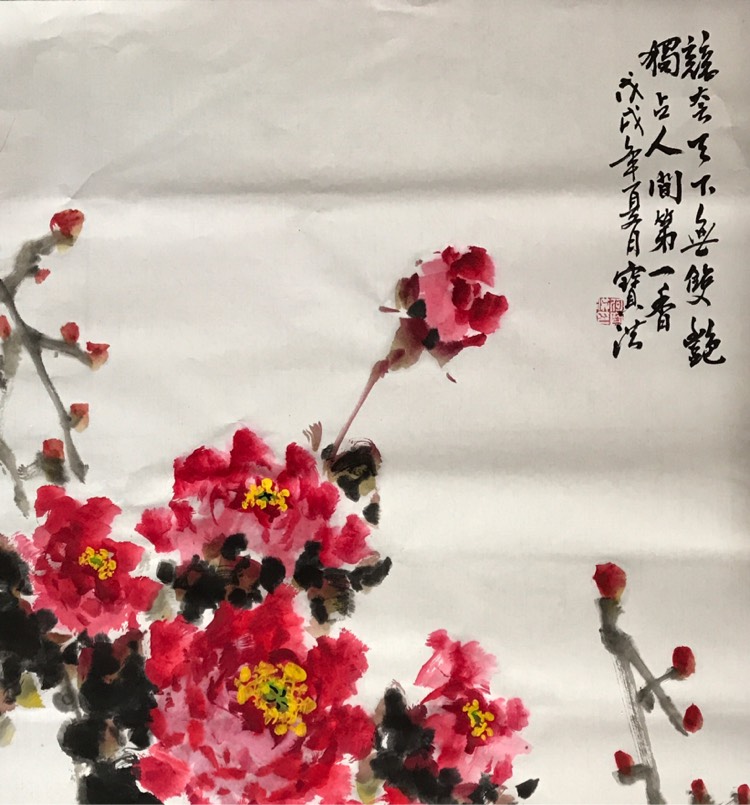 競夸天下無雙艷
獨占人間第一香
戊戌年夏月寶法